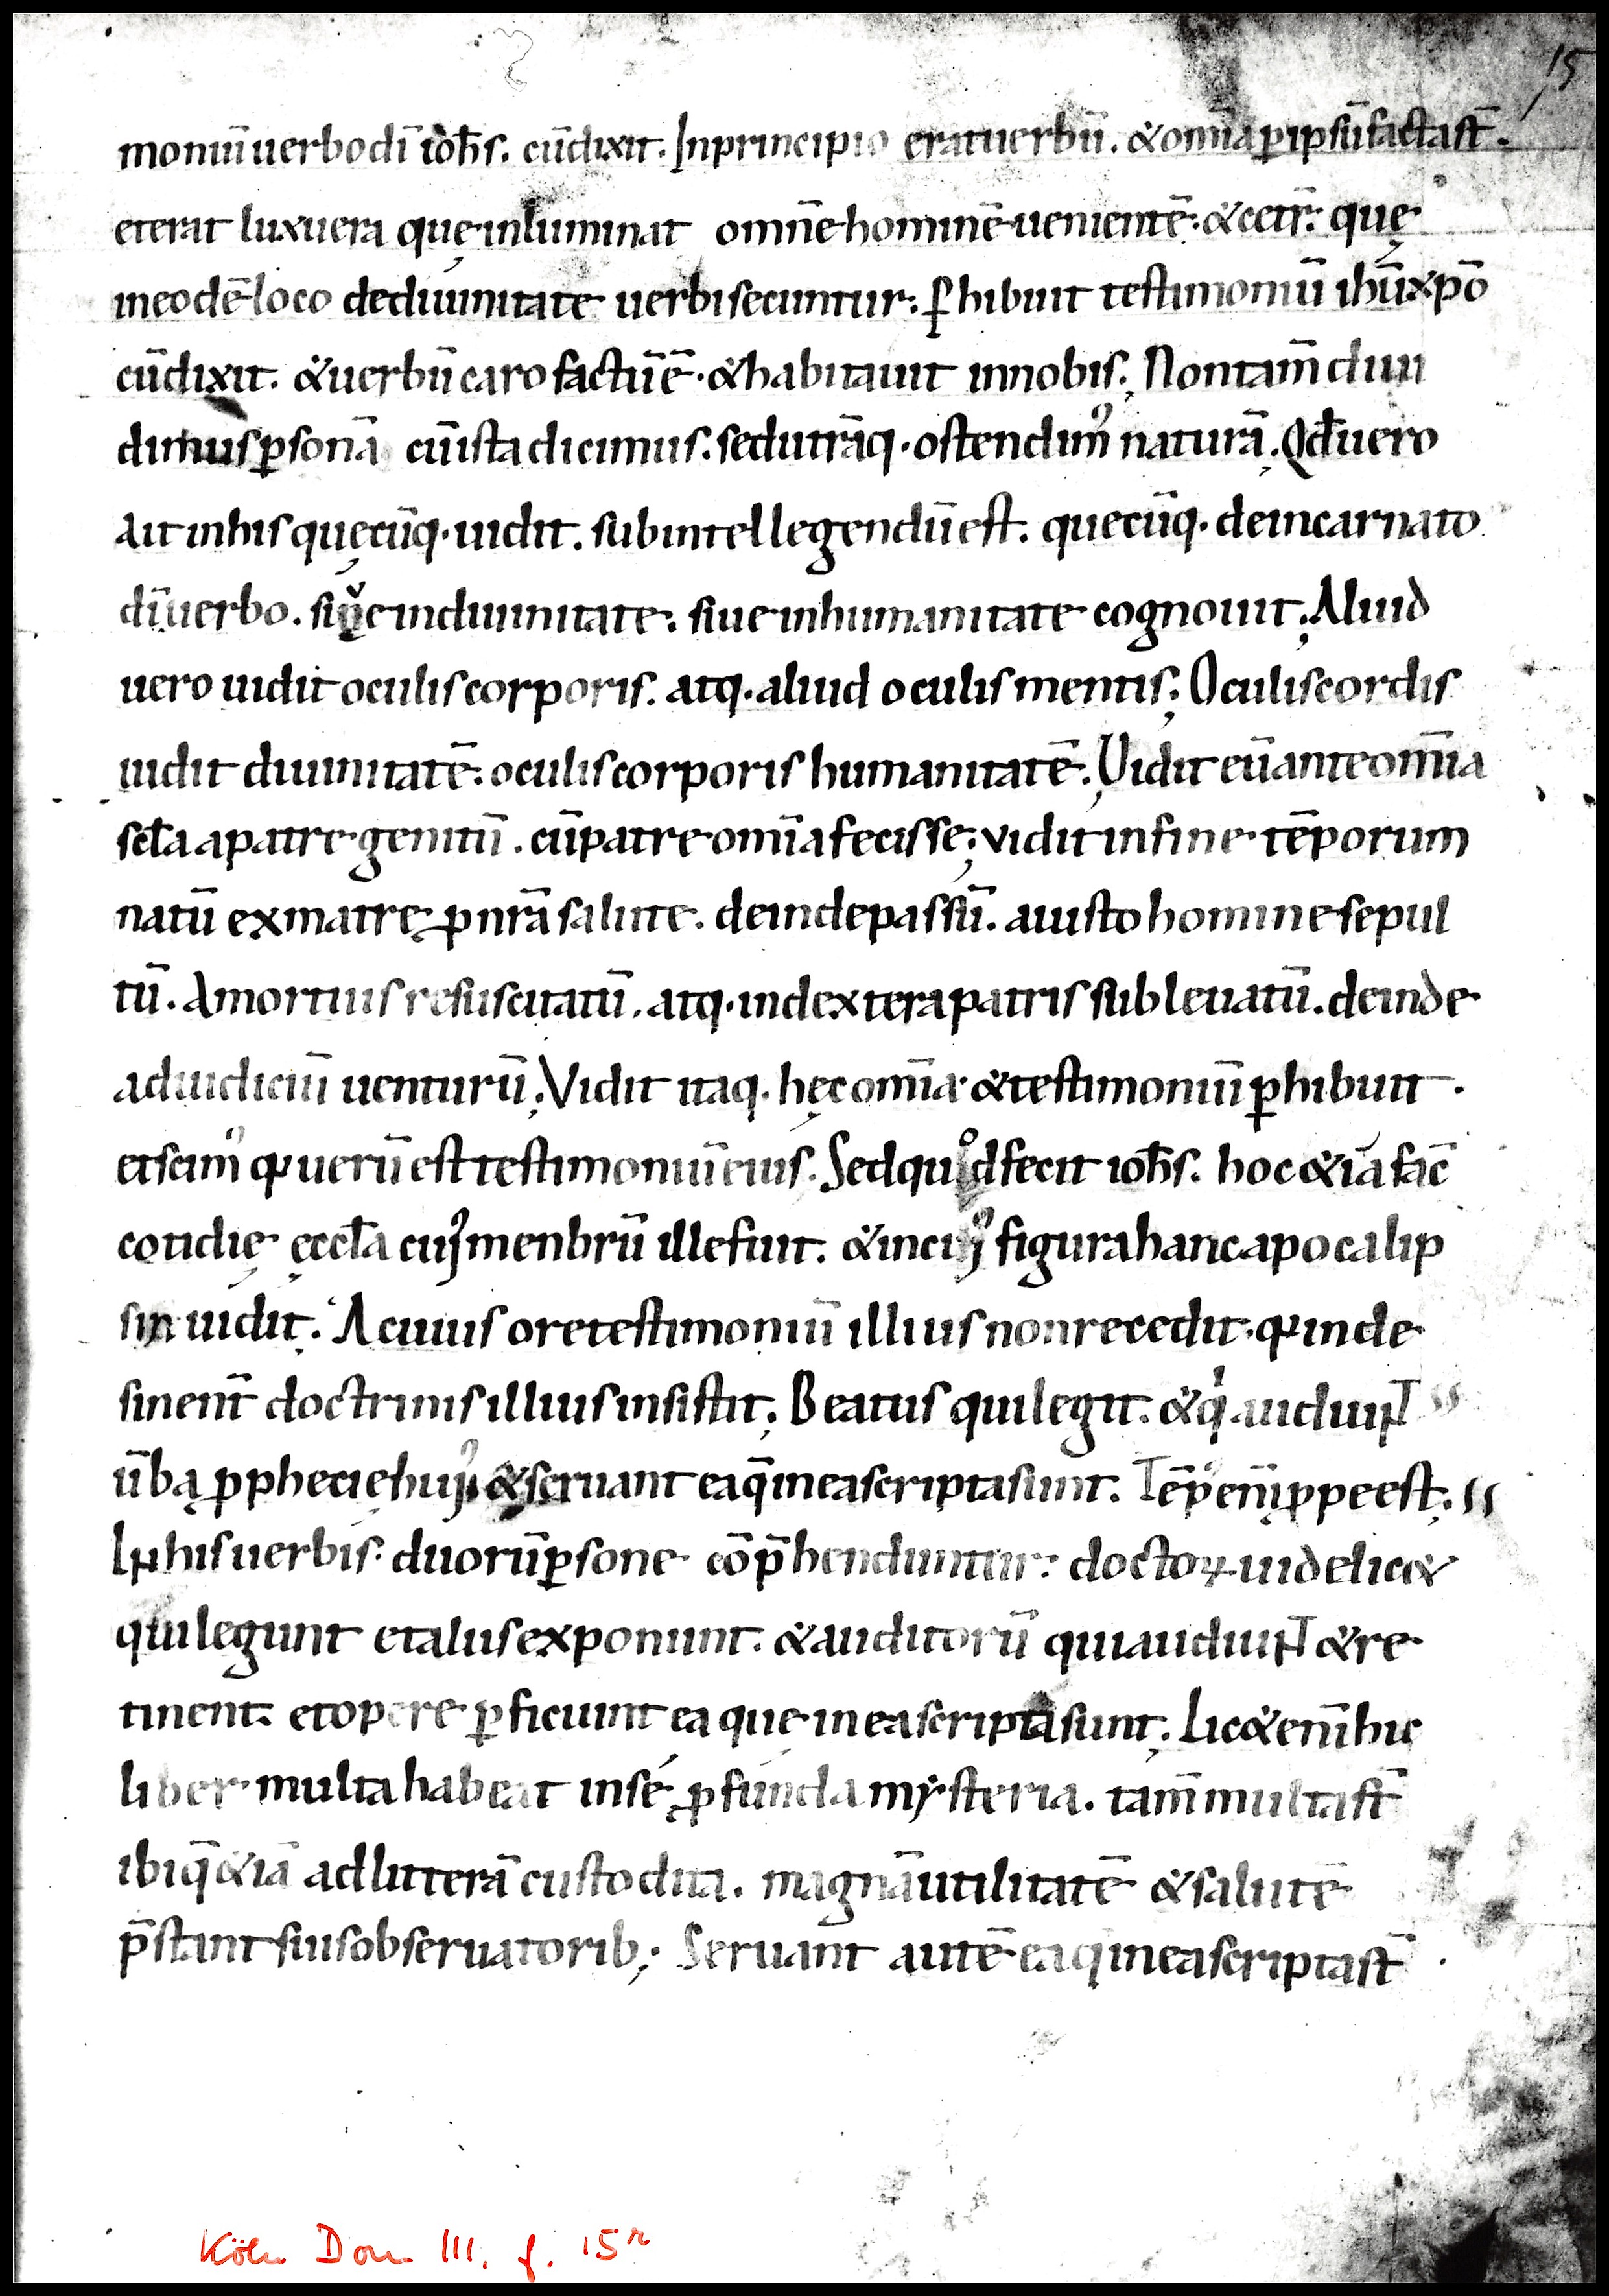 15
moniū uerbo dī ioħs. cū dixit. In principio erat uerbū. & om̄ia p̱ ipsū facta st̄.
et erat lux uera quę inluminat omnē hominē uenientē. & cetr̄. quę
in eodē loco de diuinitate uerbi secuntur. p̱hibuit testimoniū ihū xpō
cū dixit. & uerbū caro factū ē. & habitauit in nobis. Non tam̄ diui
dimus p̱sonā cū ista dicimus. sed utrāq. ostendimꝰ naturā. Qđ uero
ait in his quęcūq. uidit. sub intellegendū est. quecūq. de incarnato
dī uerbo. siue in diuinitate. siue in humanitate cognouit. Aliud
uero uidit oculis corporis. atq. aliud oculis mentis. Oculis cordis
uidit diuinitatē. oculis corporis humanitatē. Vidit eū ante om̄ia
scł̄a a patre genitū. cū patre om̄ia fecisse. vidit in fine tēporum
natū ex matre ꝓ nr̄a salute. deinde passū. a iusto homine sepul
tū. A mortuis resuscitatū. atq. in dextera patris subleuatū. deinde
ad iudiciū uenturū. Vidit itaq. hęc om̄ia & testimoniū p̱hibuit.
et scimꝰ qꝛ uerū est testimoniū eius. Sed quod fecit ioħs. hoc &iā fac̄
cotidię ęccł̄a cuiꝰ menbrū ille fuit. & in cuiꝰ figura hanc apocalip
sin uidit. A cuius ore testimoniū illius non recedit. qꝛ inde
sinent̄ doctrinis illius insistit. Beatus qui legit. & qⁱ audiunt
ūba ꝓphecię huiꝰ & seruant ea q̄ in ea scripta sunt. Tēp enī ꝓpe est.
In his uerbis. duorū p̱sone cōp̄henduntur. doctoꝝ uidelic&
qui legunt et aliis exponunt. & auditorū qui audiunt & re
tinent. et opere p̱ficiunt ea que in ea scripta sunt. Lic& enī hic
liber multa habeat in sé ꝓfunda mysteria. tam̄ multa st̄
ibi q̄ &iā ad litterā custodita. magnā utilitatē & salutē
p̄stant suis obseruatorib; Seruant autē ea q̄ in ea scripta st̄
Köln Dom III. f. 15r